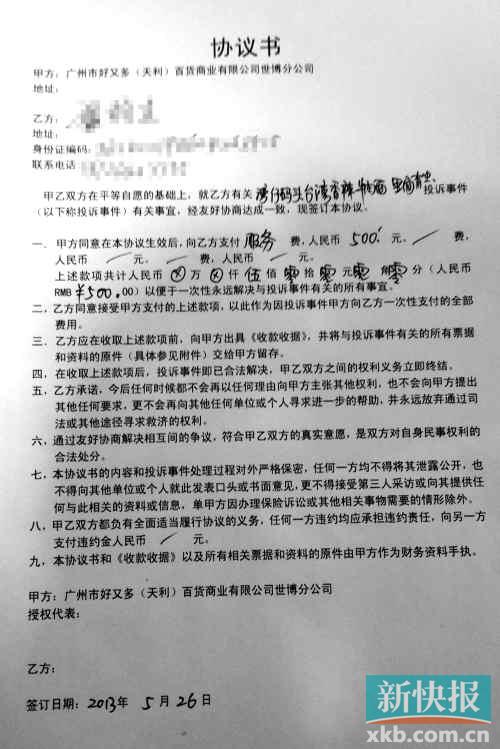 协议书
甲方：广州市好又多（天利）百货商业有限公司世博分公司
地址：
乙方：
地址：
身份证编码：
联系电话
甲乙双方在平等自愿的基础上，就乙方有关湾仔码头台湾香辣牛肉面里面有虫投诉事件
（以下称投诉事件）有关事宜，经友好协商达成一致，现签订本协议。
一、甲方同意在本协议生效后，向乙方支付 服务 费，人民币 500元 ／ 费，
人民币 ／ 元。 ／ 费，人民币 ／ 元。
上述款项共计人民币 ⊗ 万 ⊗ 仟 伍 佰 零 拾 零 元 零 角 零 分（人民币
RMB ¥500.00）以便于一次性永远解决与投诉事件有关的所有事宜。
二，乙方同意接受甲方支付的上述款项，以此作为因投诉事件甲方向乙方一次性支付的全部
费用。
三、乙方应在收取上述款项前，向甲方出具《收款收据》，并将与投诉事件有关的所有票据
和资料的原件（具体参见附件）交给甲方留存。
四，在收取上述款项后，投诉事件即已合法解决，甲乙双方之间的权利义务立即终结。
五，乙方承诺，今后任何时候都不会再以任何理由向甲方主张其他权利，也不会向甲方提出
其他任何要求，更不会再向其他任何单位或个人寻求进一步的帮助，并永远放弃通过司
法或其他途径寻求救济的权利。
六、通过友好协商解决相互间的争议，符合甲乙双方的真实意愿，是双方对自身民事权利的
合法处分。
七，本协议书的内容和投诉事件处理过程对外严格保密，任何一方均不得将其泄露公开，也
不得向其他单位或个人就此发表口头或书面意见，更不得接受第三人采访或向其提供任
何与此相关的资料或信息，单甲方因办理保险诉讼或其他相关事物需要的情形除外。
八，甲乙双方都负有全面适当履行协议的义务，任何一方违约均应承担违约责任，向另一方
支付违约金人民币 ／ 元。
九，本协议书和《收款收据》以及所有相关票据和资料的原件由甲方作为财务资料手执。
甲方：广州市好又多（天利）百货商业有限公司世博分公司
授权代表：
乙方：
签订日期：2013年 5 月 26 日
新快报
xkb.com.cn